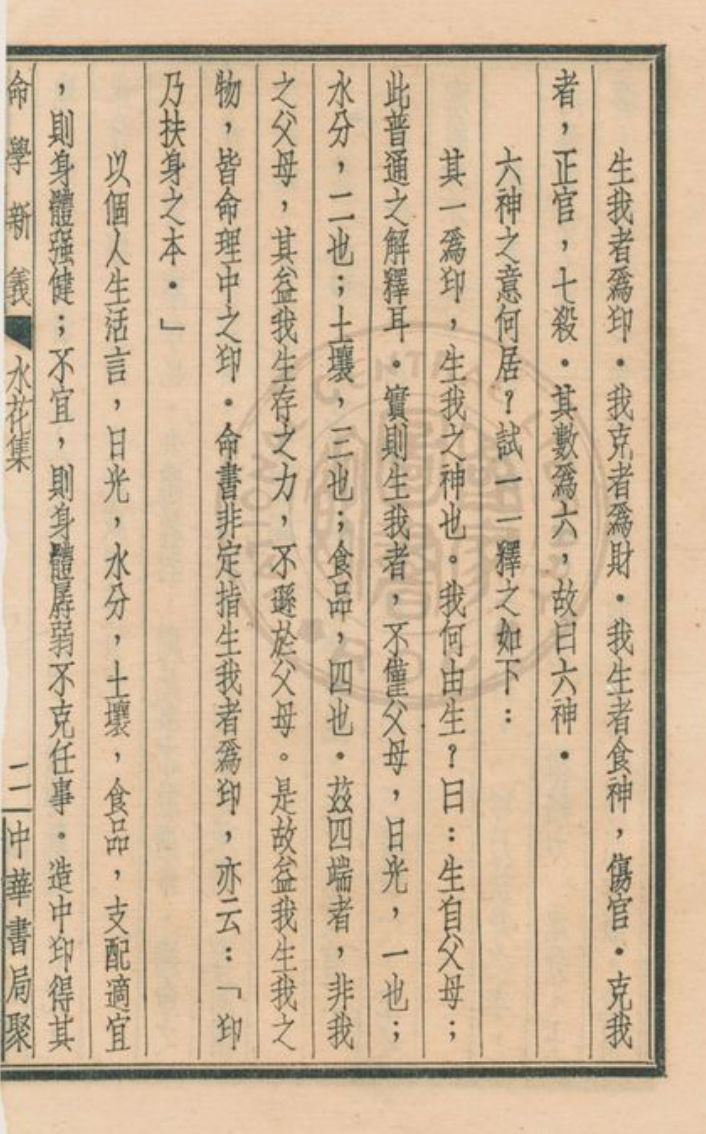 生我者爲印．我克者爲財．我生者食神，傷官．克我
者，正官，七殺．其數爲六，故曰六神．
六神之意何居？試一一釋之如下：
其一爲印，生我之神也。我何由生？曰：生自父母；
此普通之解釋耳．實則生我者，不僅父母，日光，一也；
水分，二也；土壤，三也；食品，四也．茲四端者，非我
之父母，其益我生存之力，不遜於父母。是故益我生我之
物，皆命理中之印．命書非定指生我者爲印，亦云：「印
乃扶身之本．」
以個人生活言，日光，水分，土壤，食品，支配適宜
，則身體强健；不宜，則身體孱弱不克任事。造中印得其
命學新義 水花集 二 中華書局聚